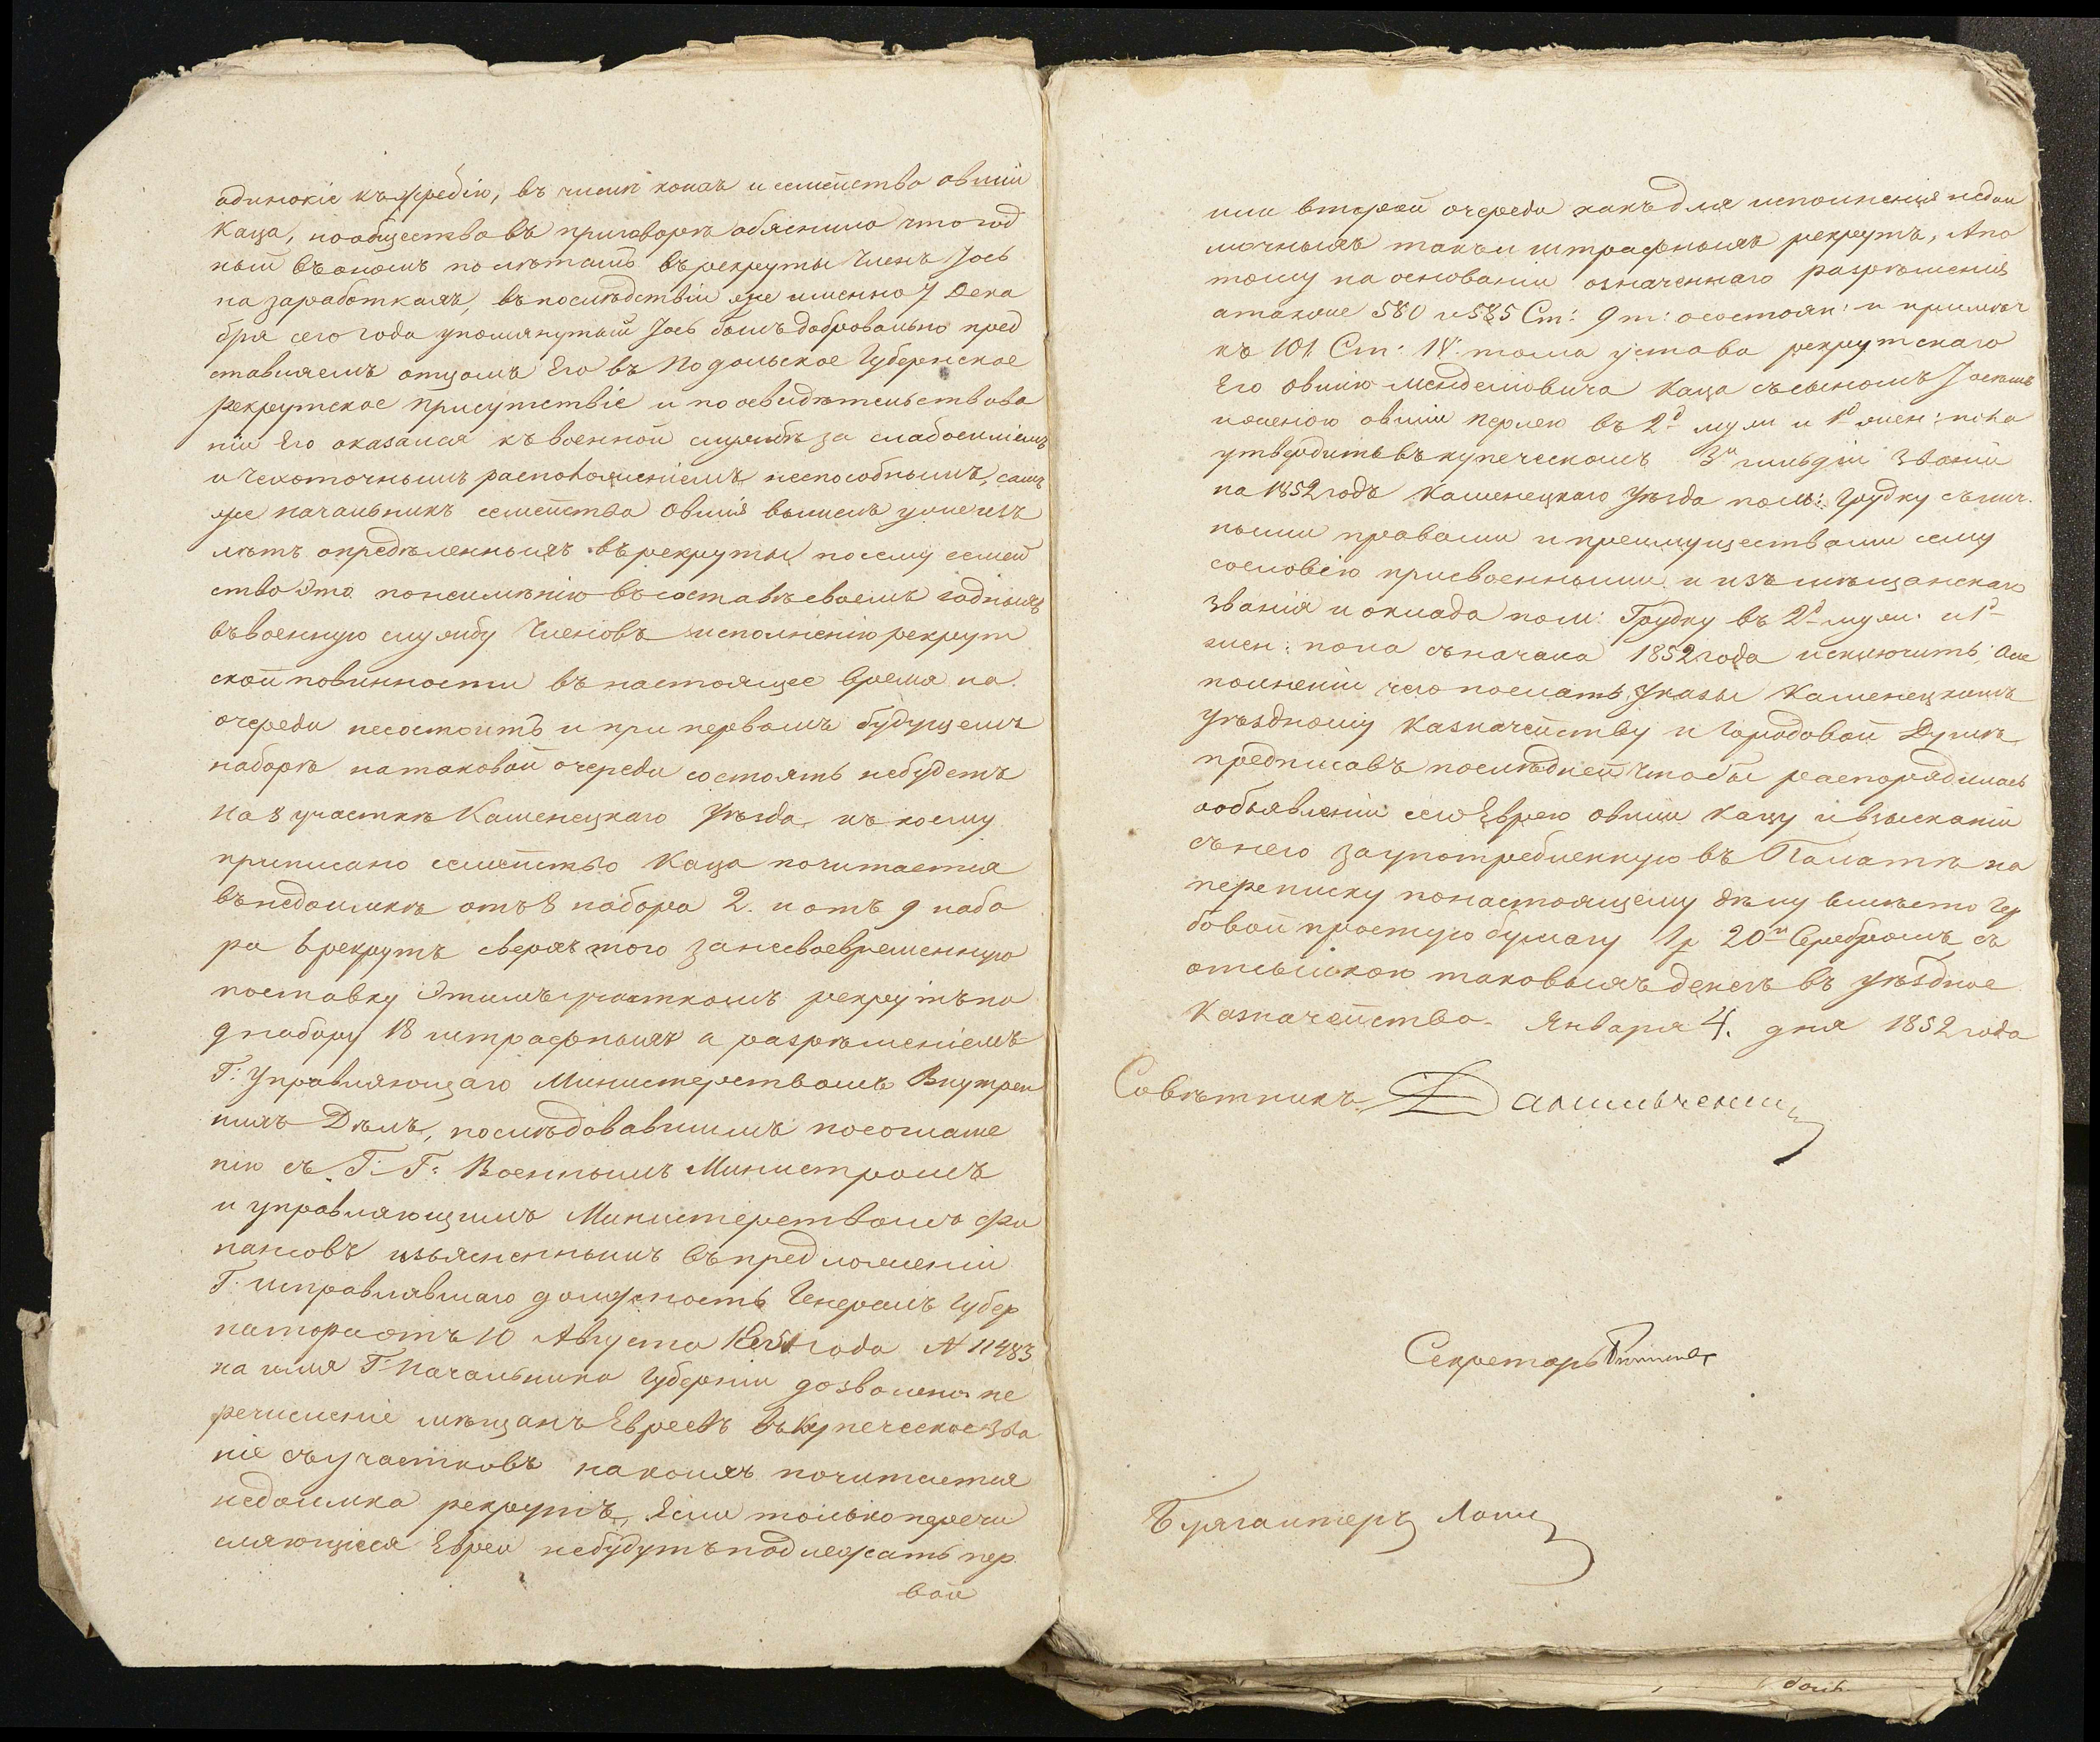 одинокіе къ жребію, въ числѣ коихъ и семейство Овшіи
Каца, но общество въ приговорѣ обяснило что год
ный въ ономъ по лѣтамъ въ рекруты Членъ Іось
на заработкахъ, въ послѣдствіи же именно 7 Дека
бря сего года упомянутый Іось былъ добровольно пред
ставляемъ отцомъ Его въ Подольское Губернское
Рекрутское Присутствіе и по освидѣтельствова
ніи Его оказался къ военной службѣ за слабосиліемъ
и Чахоточнымъ расположеніемъ неспособнымъ, самъ
же начальникъ семейства Овшія вышелъ уже изъ
лѣтъ опредѣленныхъ въ рекруты, посему семей
ство Это по неимѣнію въ составѣ своемъ годныхъ
въ военную службу Членовъ исполненію рекрут
ской повинности въ настоящее время на
очереди не состоитъ и при первомъ будущемъ
наборѣ на таковой очереди состоять небудетъ
На 8 участкѣ Каменецкаго Уѣзда къ коему
приписано семейство Каца почитается
въ недоимкѣ отъ 8 набора 2. и отъ 9 набо
ра рекрутъ сверхъ того за несвоевременную
поставку Этимъ участкомъ рекрутъ по
9 набору 18 штрафныхъ а разрѣшеніемъ
Г: Управляющаго Министерствомъ Внутрен
нихъ Дѣлъ, послѣдовавшимъ по соглаше
нію съ Г: Г: Военнымъ Министромъ
и управляющимъ Министерствомъ Фи
нансовъ изъясненнымъ въ предложеніи
Г. исправлявшаго должность Генералъ Губер
натора отъ 10 Августа 1851 года № 11483
на имя Г. Начальника Губерніи дозволено пе
речисленіе мѣщанъ Евреевъ въ Купеческое зва
ніе съ участковъ на коихъ почитается
недоимка рекрутъ, Если только перечи
сляющіеся Евреи небудутъ подлежать пер
вой
или второй очереди какъ для исполненія недои
мочныхъ такъ и штрафныхъ рекрутъ, А по
тому на основаніи означеннаго разрѣшенія
атакже 580 и 585 Ст: 9 т: о состоян: и примѣч
къ 101 Ст: IV. тома устава рекрутскаго
Его Овшію Менделіовича Каца съ сыномъ Іосемъ
и женою Овшіи Перлею въ 2д муж и 1д жен: пола
утвердить въ купеческомъ 3й гильдіи Званіи
на 1852 годъ Каменецкаго Уѣзда по м: Грудку съ лич
ными правами и преимуществами сему
сословію присвоенными и изъ мѣщанскаго
званія и оклада по м: Грудку въ 2д муж. и 1д
жен: пола съ начала 1852 года исключить, О ис
полненіи чего послать Указы Каменецкимъ
Уѣздному Казначейству и Городовой Думѣ
предписавъ послѣдней чтобы распорядилась
о объявленіи сего Еврею Овшіи Кацу и взысканіи
съ него за употребленную въ Палатѣ на
переписку по настоящему дѣлу вмѣсто Гер
бовой простую бумагу 1р 20к Серебромъ съ
отсылкою таковыхъ денегъ въ Уѣздное
Казначейство. Января 4. дня 1852 года
Совѣтникъ
Секретарь
Бухгалтеръ